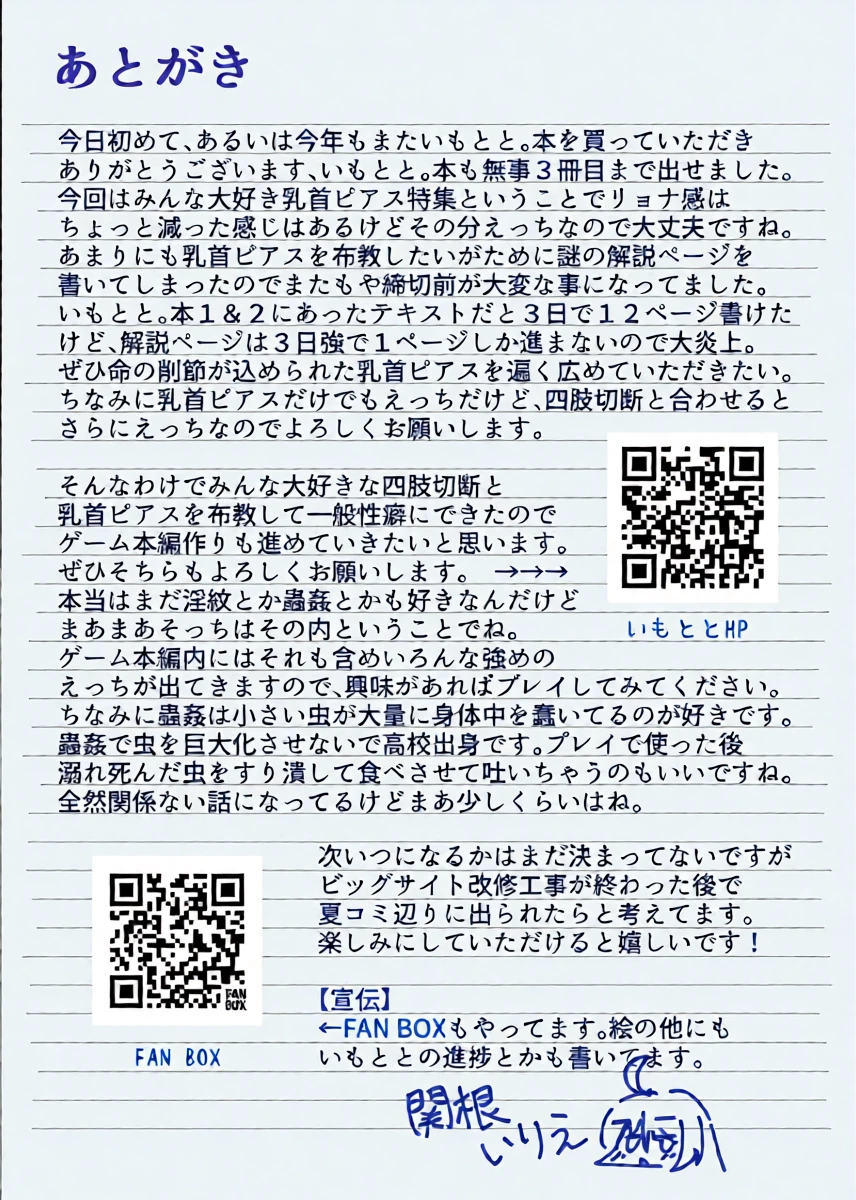 あとがき
今日初めて、あるいは今年もまたいもとと。本を買っていただき
ありがとうございます、いもとと。本も無事３冊目まで出せました。
今回はみんな大好き乳首ピアス特集ということでリョナ感は
ちょっと減った感じはあるけどその分えっちなので大丈夫ですね。
あまりにも乳首ピアスを布教したいがために謎の解説ページを
書いてしまったのでまたもや締切前が大変な事になってました。
いもとと。本１＆２にあったテキストだと３日で１２ページ書けた
けど、解説ページは３日強で１ページしか進まないので大炎上。
ぜひ命の削節が込められた乳首ピアスを遍く広めていただきたい。
ちなみに乳首ピアスだけでもえっちだけど、四肢切断と合わせると
さらにえっちなのでよろしくお願いします。
そんなわけでみんな大好きな四肢切断と
乳首ピアスを布教して一般性癖にできたので
ゲーム本編作りも進めていきたいと思います。
ぜひそちらもよろしくお願いします。 →→→
本当はまだ淫紋とか蟲姦とかも好きなんだけど
まあまあそっちはその内ということでね。
いもととHP
ゲーム本編内にはそれも含めいろんな強めの
えっちが出てきますので、興味があればプレイしてみてください。
ちなみに蟲姦は小さい虫が大量に身体中を蠢いてるのが好きです。
蟲姦で虫を巨大化させないで高校出身です。プレイで使った後
溺れ死んだ虫をすり潰して食べさせて吐いちゃうのもいいですね。
全然関係ない話になってるけどまあ少しくらいはね。
次いつになるかはまだ決まってないですが
ビッグサイト改修工事が終わった後で
夏コミ辺りに出られたらと考えてます。
楽しみにしていただけると嬉しいです！
FAN
BOX
【宣伝】
←FAN BOXもやってます。絵の他にも
いもととの進捗とかも書いてます。
FAN BOX
関根
いりえ